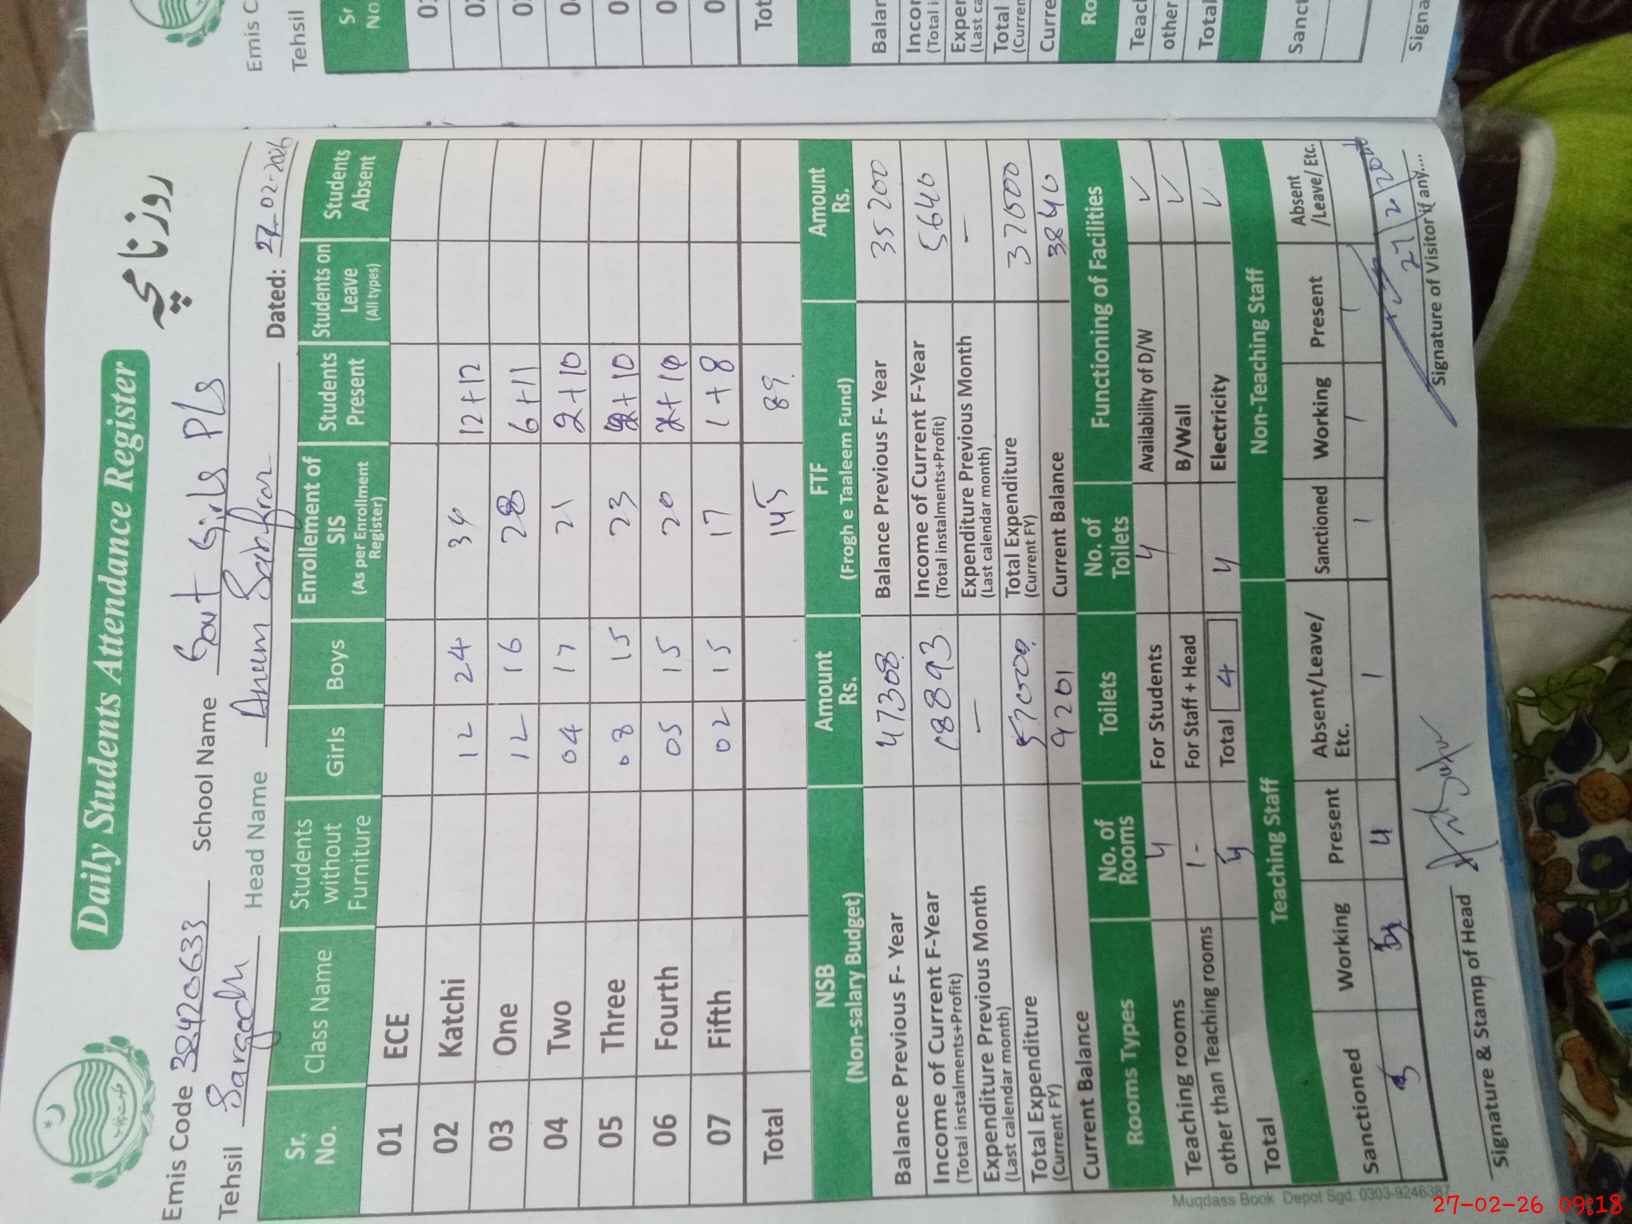 Daily Students Attendance Register
روزنامچہ
Emis Code 38420633 School Name Govt Girls P/s
Tehsil Sargodh Head Name Aneem Dated: 27-02-2026
Sr. No. Class Name Students without Furniture Girls Boys Enrollement of SIS (As per Enrollment Register) Students Present Students on Leave (All types) Students Absent
01 ECE
02 Katchi 12 24 36 12+12
03 One 12 16 28 6+11
04 Two 04 17 21 2+10
05 Three 08 15 23 +10
06 Fourth 05 15 20 +10
07 Fifth 02 15 17 1+8
Total 145 89
NSB (Non-salary Budget) Amount Rs. FTF (Frogh e Taaleem Fund) Amount Rs.
Balance Previous F- Year 47308 Balance Previous F- Year 35200
Income of Current F-Year (Total instalments+Profit) 18893 Income of Current F-Year (Total instalments+Profit) 5640
Expenditure Previous Month (Last calendar month) — Expenditure Previous Month (Last calendar month) —
Total Expenditure (Current FY) 57000 Total Expenditure (Current FY) 37000
Current Balance 9201 Current Balance 3840
Rooms Types No. of Rooms Toilets No. of Toilets Functioning of Facilities
Teaching rooms 4 For Students 4 Availability of D/W ✓
other than Teaching rooms 1- For Staff + Head B/Wall ✓
Total Total 4 4 Electricity ✓
Teaching Staff Non-Teaching Staff
Sanctioned Working Present Absent/Leave/ Etc. Sanctioned Working Present Absent /Leave/ Etc.
5 4 1 1 1 1
Signature & Stamp of Head Signature of Visitor if any....
Muqdass Book Depot Sgd. 0303-9246387
27-02-26 09:18
Emis C
Tehsil
Sr
No.
Tot
Balan
Incor
(Total i
Expen
(Last ca
Total
(Curren
Curre
Ro
Teach
other
Total
Sanct
Signa